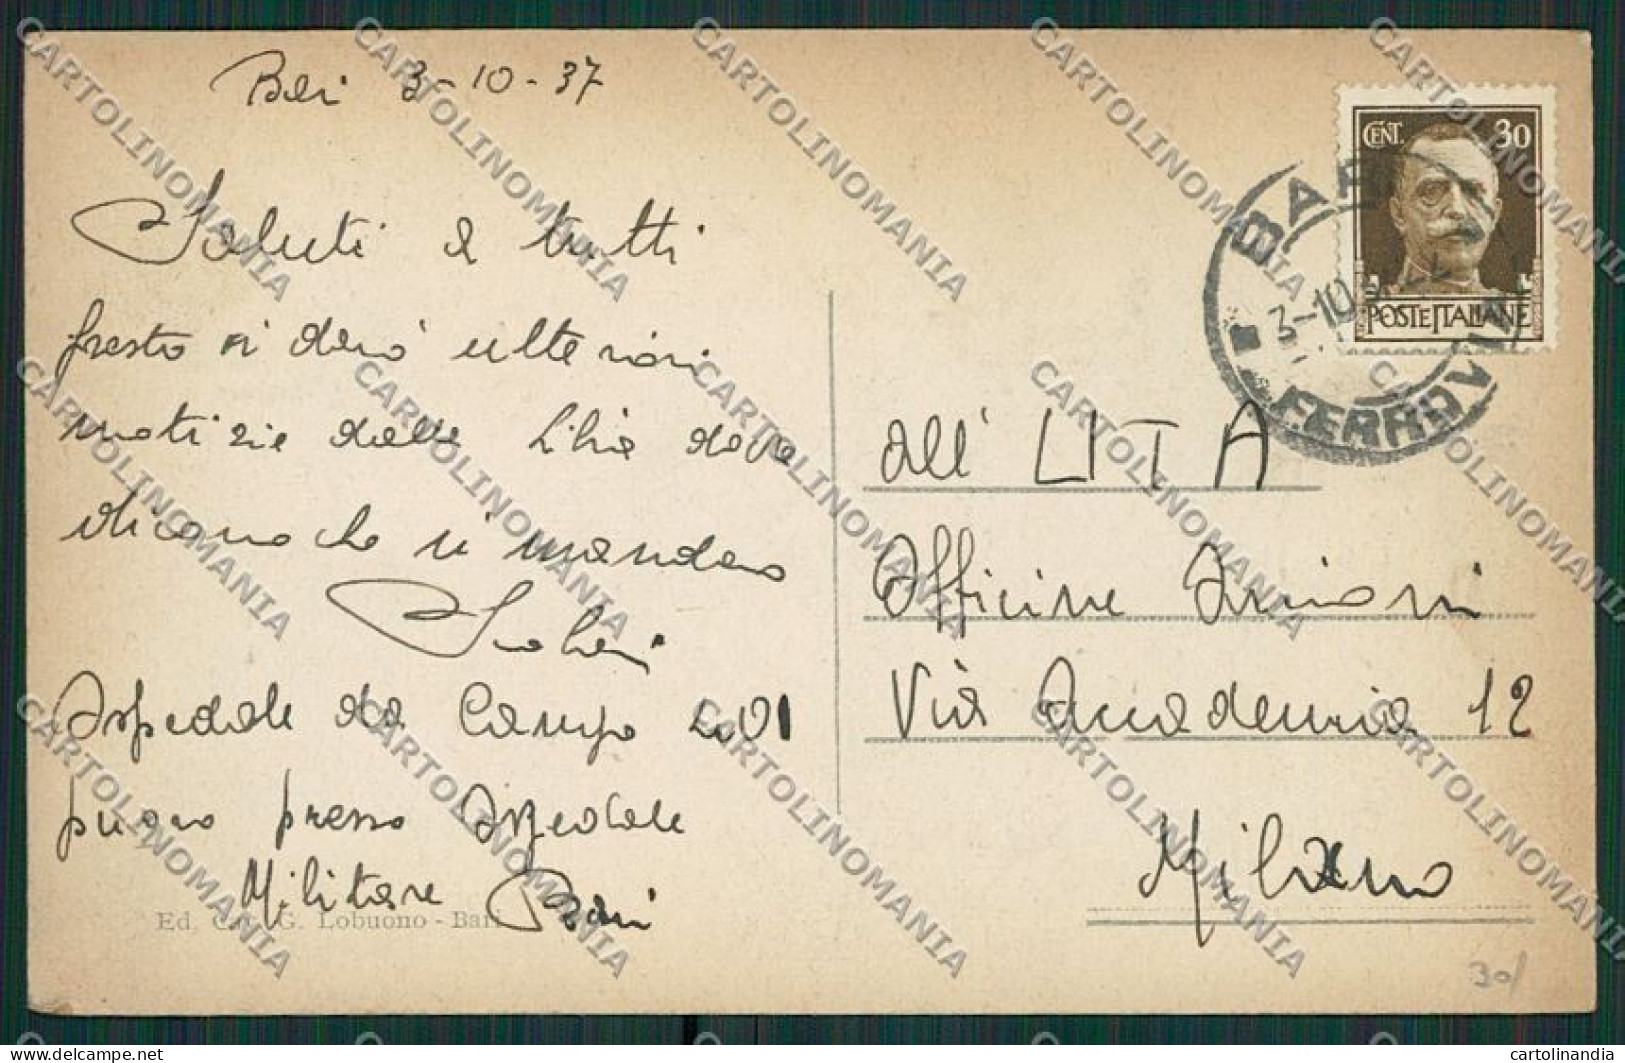 Bari 3-10-37
Saluti a tutti
presto vi darò ulteriori
notizie dalla Libia dove
dicono che ci mandano
Ospedale da Campo
presso Ospedale
Militare Bari
Ed. G. Lobuono - Bari
CENT. 30
POSTE ITALIANE
BARI
3-10
FERROVIA
all' LITA
Officine
Via Accademia 12
Milano
30/
CARTOLINOMANIA
cartolinandia